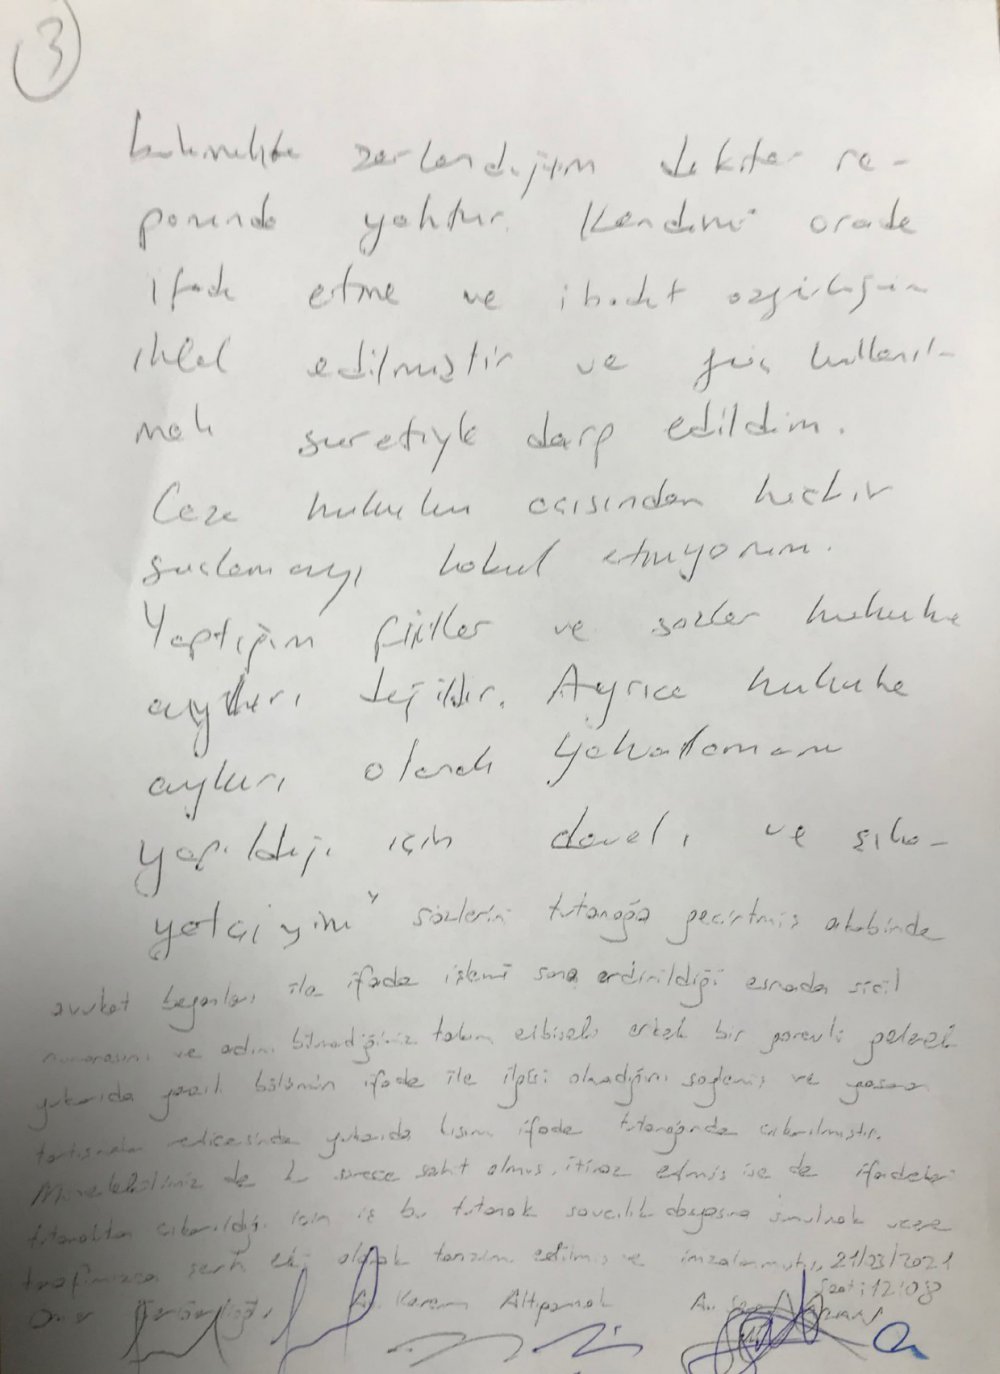 3
zorlandığım doktor ra-
porunda yoktur. Kendimi orada
ifade etme ve ibadet özgürlüğüm
ihlal edilmiştir ve güç kullanıl-
mak suretiyle darp edildim.
Ceza hukuku açısından hiçbir
suçlamayı kabul etmiyorum.
Yaptığım fiiller ve sözler hukuka
aykırı değildir. Ayrıca hukuka
aykırı olarak yakalamam
yapıldığı için davalı ve şika-
yetçiyim" sözlerini tutanağa geçirtmiş akabinde
avukat beyanları ile ifade işlemi sona erdirildiği esnada sicil
numarasını ve adını bilmediğimiz takım elbiseli erkek bir görevli gelerek
yukarıda yazılı bölümün ifade ile ilgisi olmadığını söylemiş ve yaşanan
tartışmalar neticesinde yukarıda kısım ifade tutanağından çıkarılmıştır.
Müvekkilimiz de bu sürece şahit olmuş, itiraz etmiş ise de ifadeleri
tutanaktan çıkarıldığı için iş bu tutanak savcılık dosyasına sunulmak üzere
tarafımızca şerh eki olarak tanzim edilmiş ve imzalanmıştır. 21/03/2021
Saat: 12:08
Ömer Av. Kerem Altıparmak Av.